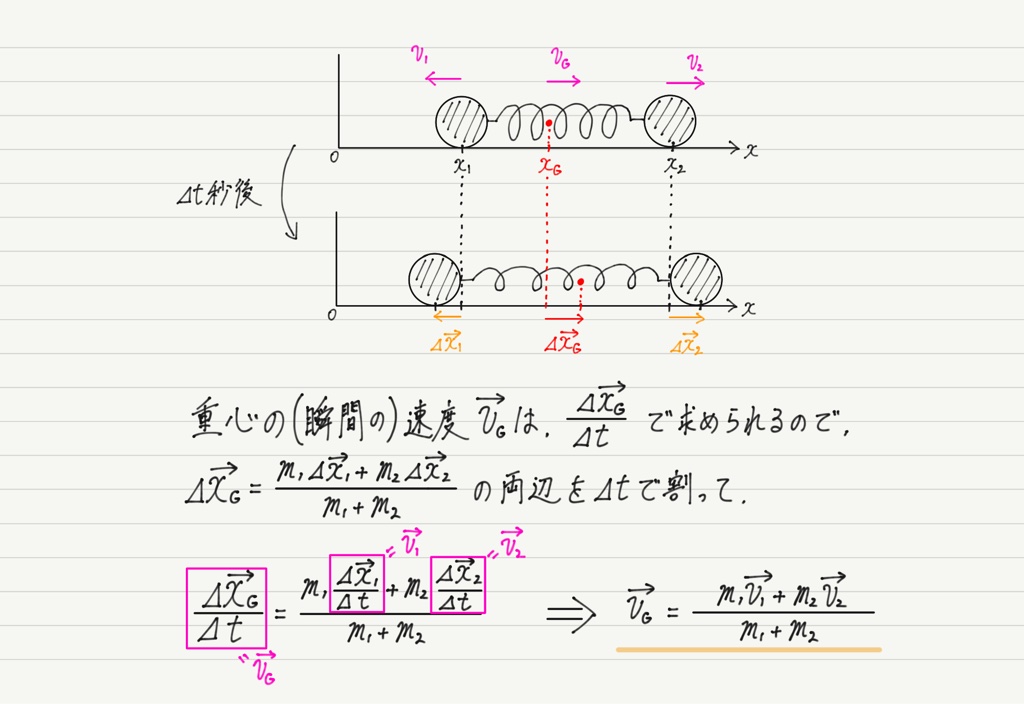 v₁ v_G v₂
0 x₁ x_G x₂ x
Δt秒後
0 x
Δx⃗₁ Δx⃗_G Δx⃗₂
重心の(瞬間の)速度 v⃗_G は, Δx⃗_G/Δt で求められるので,
Δx⃗_G = (m₁Δx⃗₁ + m₂Δx⃗₂)/(m₁ + m₂) の両辺をΔtで割って,
"v⃗₁ "v⃗₂
Δx⃗_G/Δt = (m₁ Δx⃗₁/Δt + m₂ Δx⃗₂/Δt)/(m₁ + m₂) ⟹ v⃗_G = (m₁v⃗₁ + m₂v⃗₂)/(m₁ + m₂)
"v⃗_G